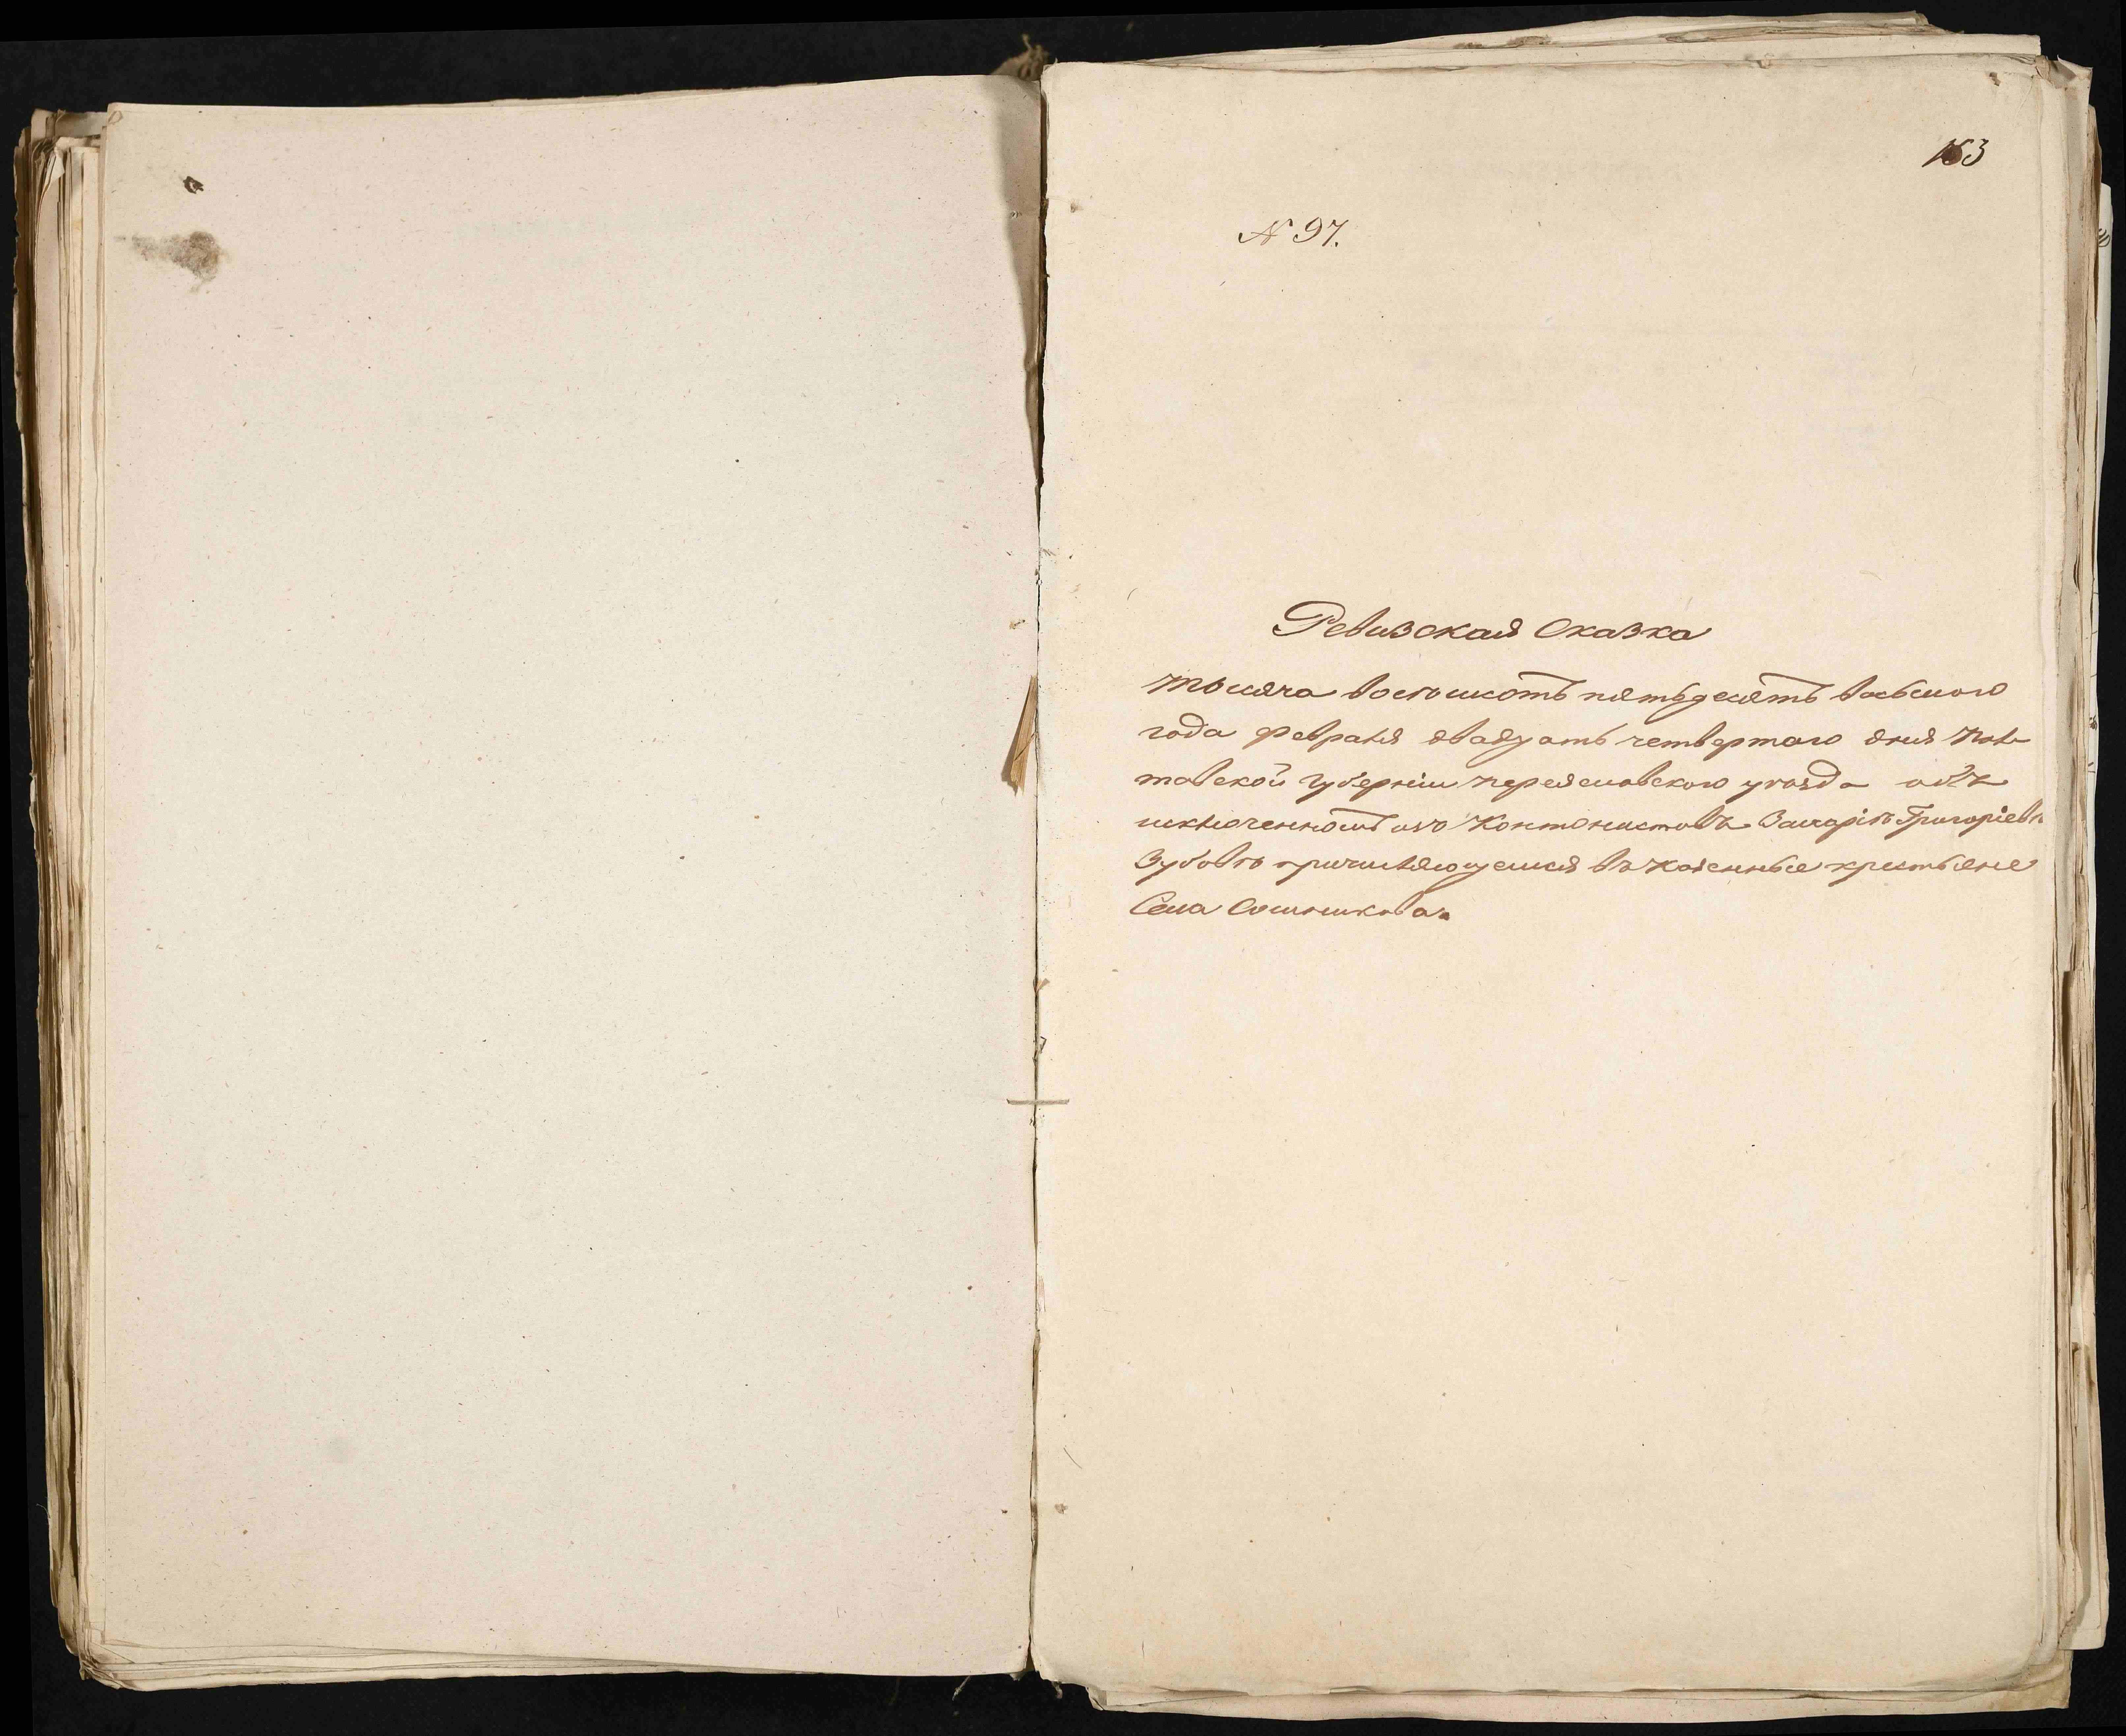 163
№ 97.
Ревизская Сказка
тысяча восемьсотъ пятьдесятъ восьмого
года февраля двадцать четвертаго дня Пол-
тавской губерніи переяславского уезда объ
исключенномъ изъ Кантонистовъ Захаріѣ Григоріевѣ
Зубовѣ причисляющемся въ казенные крестьяне
Села Сошникова.